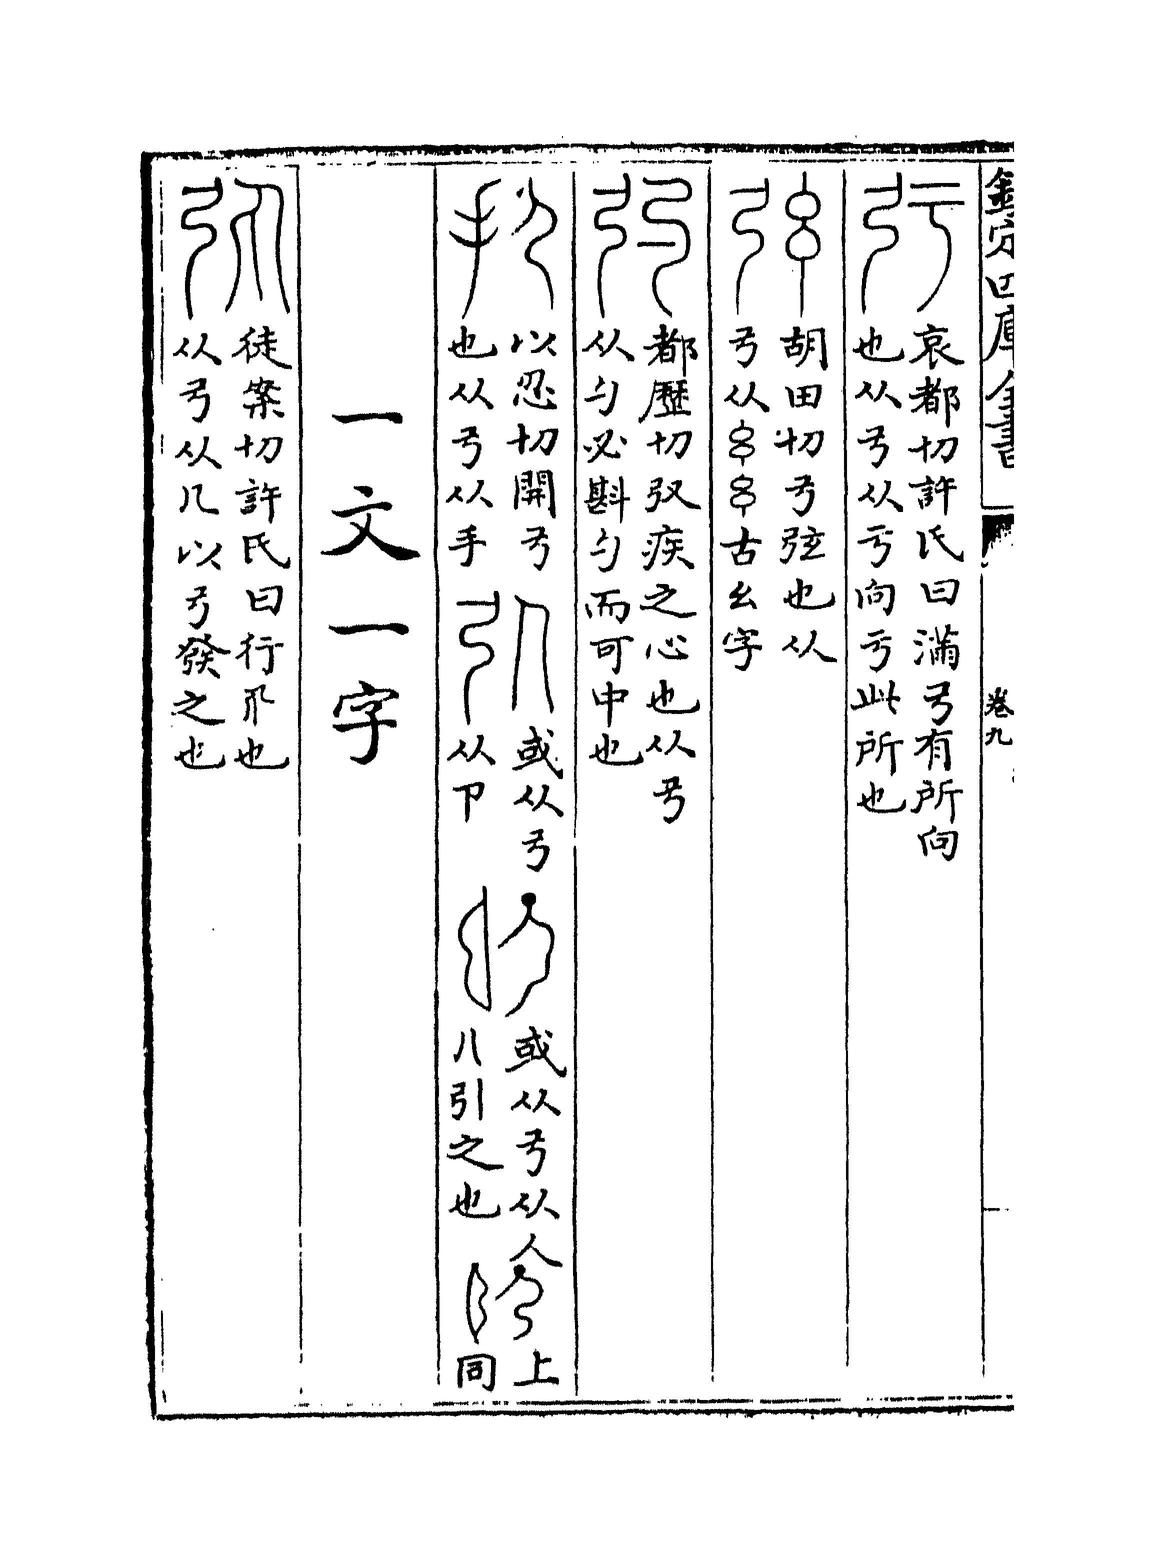 欽定四庫全書
卷九
哀都切許氏曰滿弓有所向
也从弓从亏向亏此所也
胡田切弓弦也从
弓从𢆶𢆶古幺字
都歷切䟽疾之心也从弓
从勺必斟勺而可中也
以忍切開弓
也从弓从手
或从弓
从卩
或从弓从人
八引之也
上
同
一文一字
徒案切許氏曰行丸也
从弓从几以弓發之也